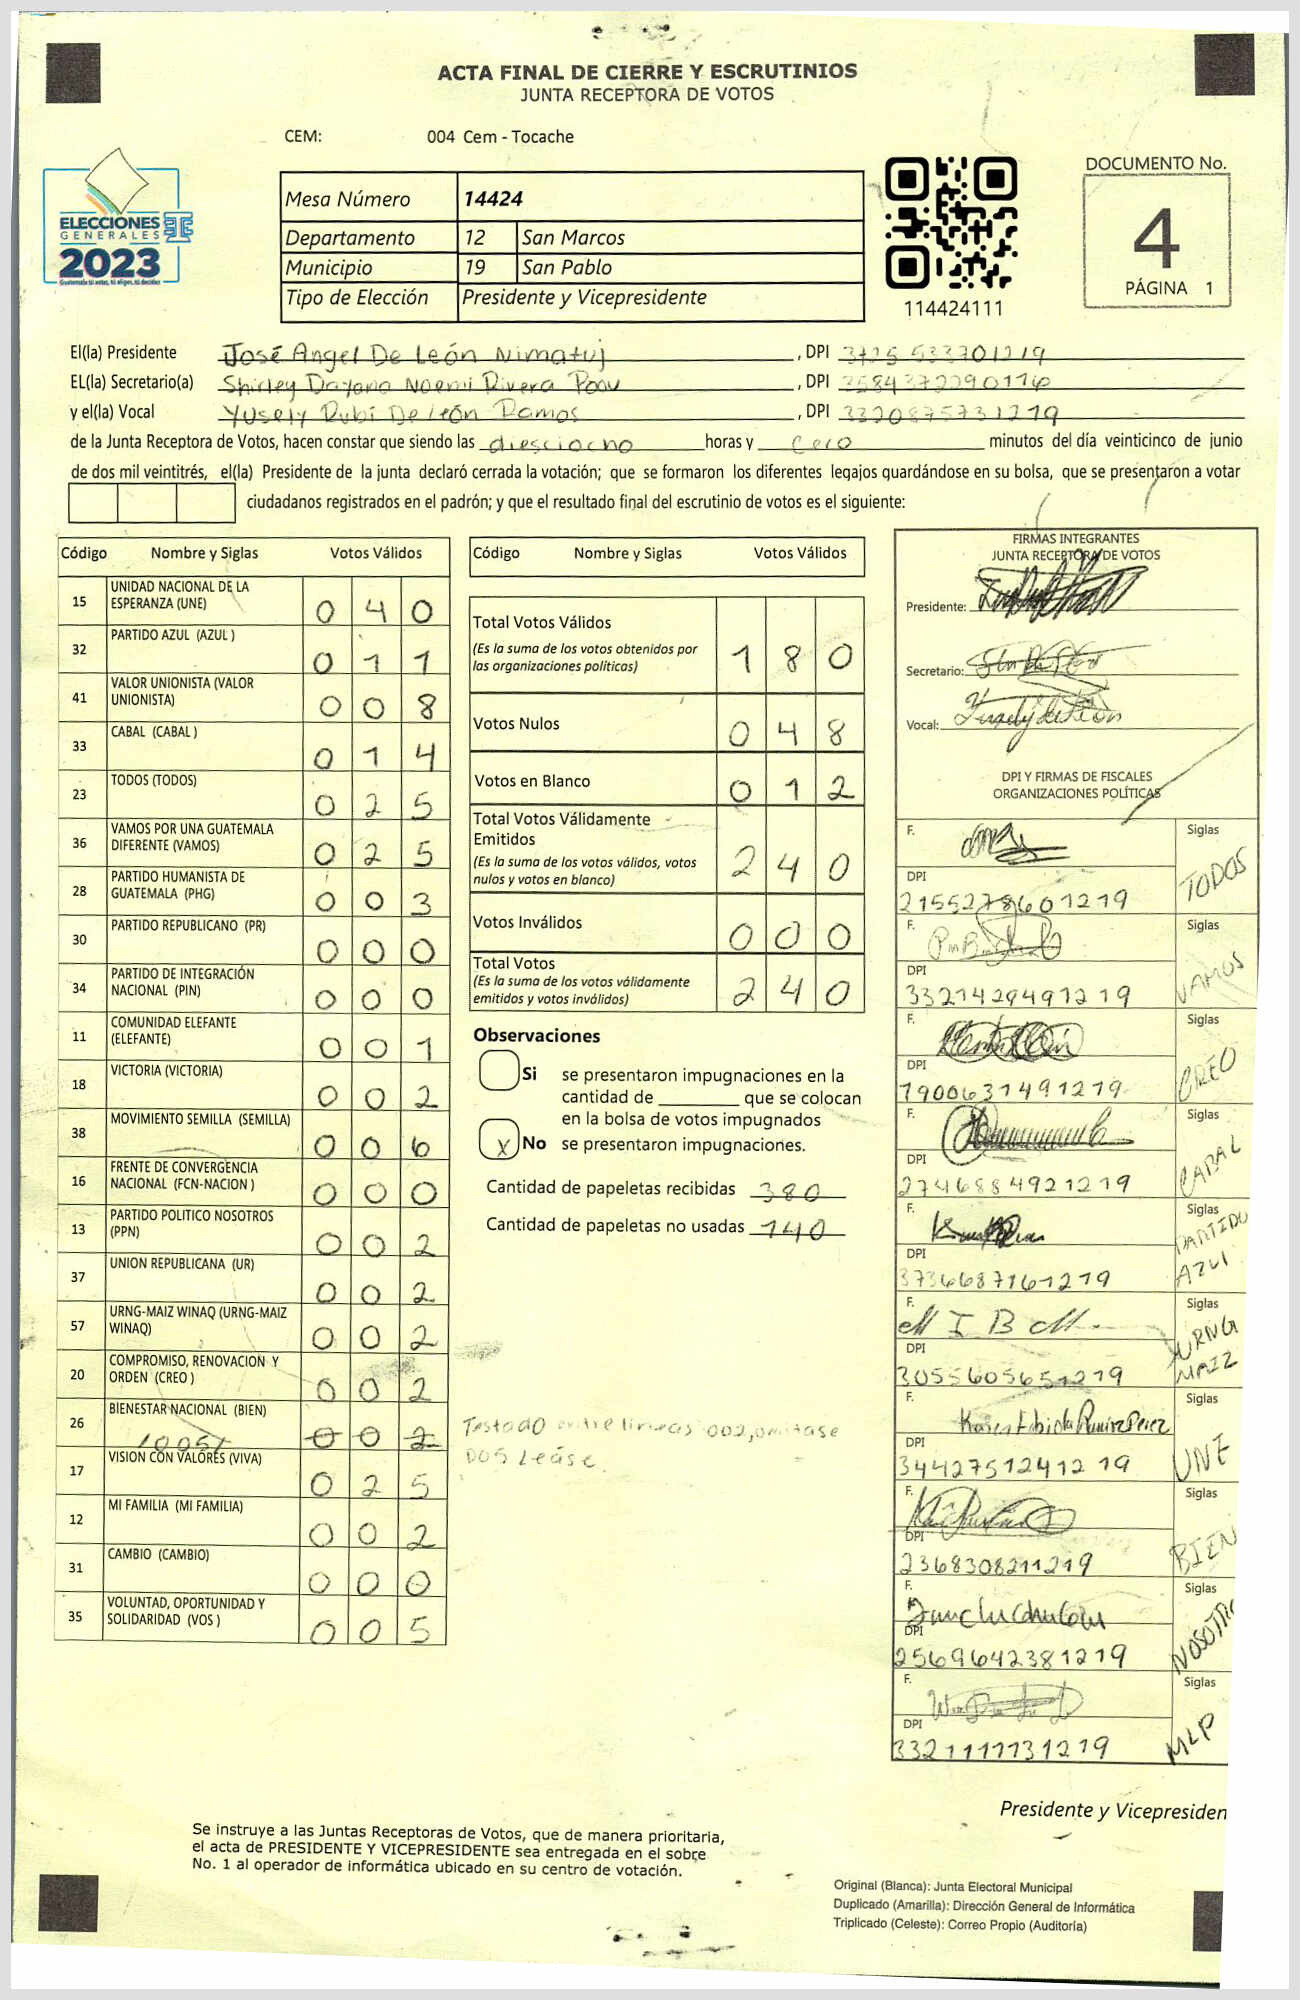 ACTA FINAL DE CIERRE Y ESCRUTINIOS
JUNTA RECEPTORA DE VOTOS
CEM: 004 Cem - Tocache
ELECCIONES
GENERALES
2023
Mesa Número 14424
Departamento 12 San Marcos
Municipio 19 San Pablo
Tipo de Elección Presidente y Vicepresidente
114424111
DOCUMENTO No.
4
PÁGINA 1
El(la) Presidente José Angel De León Nimatuj , DPI 3725 533701219
EL(la) Secretario(a) Shirley Dayana Noemi Rivera , DPI 3584372290116
y el(la) Vocal Yusely Rubí De León Ramos , DPI 3320875731219
de la Junta Receptora de Votos, hacen constar que siendo las diesciocho horas y cero minutos del día veinticinco de junio
de dos mil veintitrés, el(la) Presidente de la junta declaró cerrada la votación; que se formaron los diferentes legajos guardándose en su bolsa, que se presentaron a votar
ciudadanos registrados en el padrón; y que el resultado final del escrutinio de votos es el siguiente:
Código Nombre y Siglas Votos Válidos
15 UNIDAD NACIONAL DE LA ESPERANZA (UNE) 0 4 0
32 PARTIDO AZUL (AZUL ) 0 1 1
41 VALOR UNIONISTA (VALOR UNIONISTA) 0 0 8
33 CABAL (CABAL ) 0 1 4
23 TODOS (TODOS) 0 2 5
36 VAMOS POR UNA GUATEMALA DIFERENTE (VAMOS) 0 2 5
28 PARTIDO HUMANISTA DE GUATEMALA (PHG) 0 0 3
30 PARTIDO REPUBLICANO (PR) 0 0 0
34 PARTIDO DE INTEGRACIÓN NACIONAL (PIN) 0 0 0
11 COMUNIDAD ELEFANTE (ELEFANTE) 0 0 1
18 VICTORIA (VICTORIA) 0 0 2
38 MOVIMIENTO SEMILLA (SEMILLA) 0 0 6
16 FRENTE DE CONVERGENCIA NACIONAL (FCN-NACION ) 0 0 0
13 PARTIDO POLITICO NOSOTROS (PPN) 0 0 2
37 UNION REPUBLICANA (UR) 0 0 2
57 URNG-MAIZ WINAQ (URNG-MAIZ WINAQ) 0 0 2
20 COMPROMISO, RENOVACION Y ORDEN (CREO ) 0 0 2
26 BIENESTAR NACIONAL (BIEN) 0 0 2
17 VISION CON VALORES (VIVA) 0 2 5
12 MI FAMILIA (MI FAMILIA) 0 0 2
31 CAMBIO (CAMBIO) 0 0 0
35 VOLUNTAD, OPORTUNIDAD Y SOLIDARIDAD (VOS ) 0 0 5
Código Nombre y Siglas Votos Válidos
Total Votos Válidos
(Es la suma de los votos obtenidos por las organizaciones políticas) 1 8 0
Votos Nulos 0 4 8
Votos en Blanco 0 1 2
Total Votos Válidamente Emitidos
(Es la suma de los votos válidos, votos nulos y votos en blanco) 2 4 0
Votos Inválidos 0 0 0
Total Votos
(Es la suma de los votos válidamente emitidos y votos inválidos) 2 4 0
Observaciones
Si se presentaron impugnaciones en la
cantidad de ________ que se colocan
en la bolsa de votos impugnados
X No se presentaron impugnaciones.
Cantidad de papeletas recibidas 380
Cantidad de papeletas no usadas 140
Testado entre lineas 002, omitase
005 Leáse.
FIRMAS INTEGRANTES
JUNTA RECEPTORA DE VOTOS
Presidente:
Secretario:
Vocal: Yusely de León
DPI Y FIRMAS DE FISCALES
ORGANIZACIONES POLÍTICAS
F. Siglas TODOS
DPI 2155278601219
F. Siglas VAMOS
DPI 3321429491219
F. Siglas CREO
DPI 1900631491219
F. Siglas CABAL
DPI 2746884921219
F. Siglas PARTIDO AZUL
DPI 3736687161219
F. M I B M Siglas URNG MAIZ
DPI 3055605651219
F. Karen Fabiola Ramirez Perez Siglas UNE
DPI 3442751241219
F. Siglas BIEN
DPI 2368308211219
F. Siglas
DPI 2569642381219
F. Siglas MLP
DPI 3321111731219
Presidente y Vicepresiden
Se instruye a las Juntas Receptoras de Votos, que de manera prioritaria,
el acta de PRESIDENTE Y VICEPRESIDENTE sea entregada en el sobre
No. 1 al operador de informática ubicado en su centro de votación.
Original (Blanca): Junta Electoral Municipal
Duplicado (Amarilla): Dirección General de Informática
Triplicado (Celeste): Correo Propio (Auditoría)